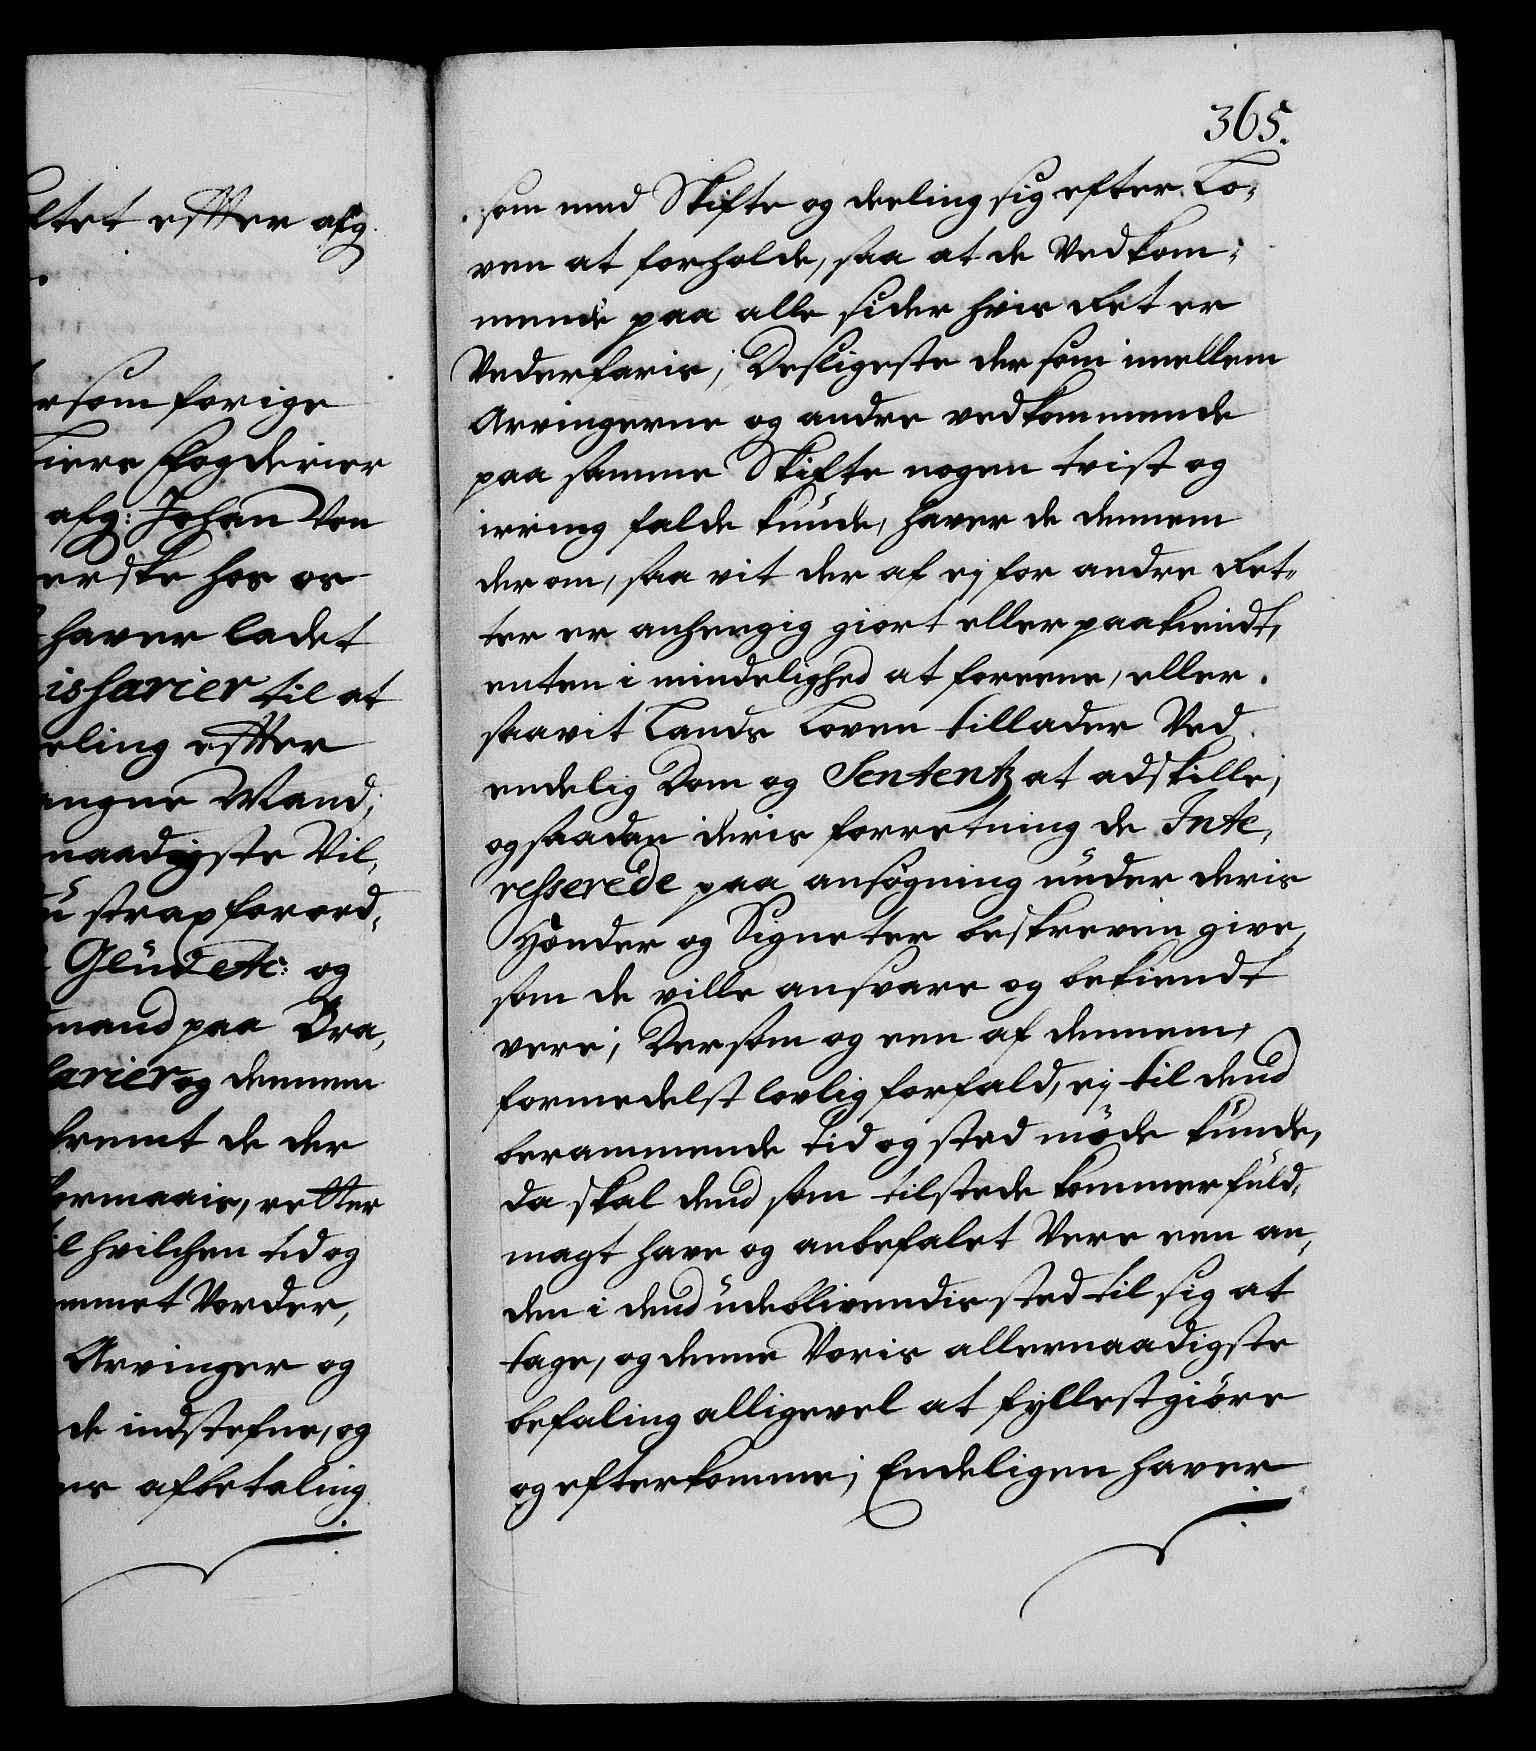 ltet effter afg.
rsom forige
iere Fogderier
afg: Johan Von
erske hos os
haver ladet
issarier til at
eling effter
angne Mand;
naadigste Vil,
ü strax forord,
Glüd etc: og
mand paa Bra,
sarier og dennem
bremt de der
formaais, retter
il hvilchen tid og
mmet Vorder,
Arvinger og
de indstefne, og
es afbetaling
365.
som med Skifte og deeling sig efter Lo,
ven at forholde, saa at de Vedkom,
mende paa alle sider hvis Ret er
Vederfaris; Desligeste der som imellem
Arvingerne og andre vedkommende
paa samme Skifte nogen tvist og
irring falde kunde, haver de dennem
der om, saa vit der af ej for andre Ret,
ter er anhengig giort eller paakiendt,
enten i mindelighed at foreene, eller
saavit Lands Loven tillader Ved
endelig Dom og Sententz at adskille;
og saadan deris forretning de Inte,
resserede paa ansøgning ünder deris
Hænder og Signeter beskreven give,
som de ville ansvare og bekiendt
vere; Dersom og een af dennem,
formedelst lovlig forfald, ej til dend
berammende tid og sted møde kunde,
da skal dend som tilstede kommer füld,
magt have og anbefalet Vere een an,
den i dend üdeblivendis sted til sig at
tage, og denne Voris allernaadigste
befaling alligevel at fyllestgiøre
og efterkomme; Endeligen haver